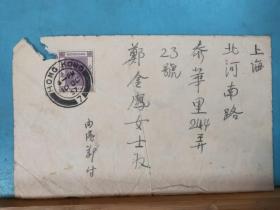 上海
北河南路
泰華里244弄
23號
鄭金鳳女士收
由港鄭付
HONG KONG